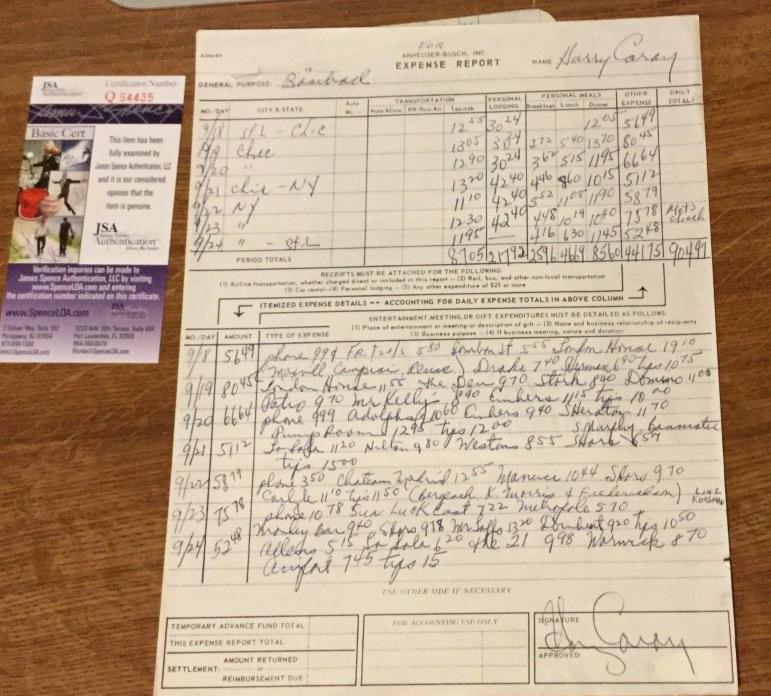 JSA
Authentication
Certification Number
Q 54435
Basic Cert
This item has been
fully examined by
James Spence Authentication, LLC
and it is our considered
opinion that the
item is genuine.
JSA
Authentication
Verification inquiries can be made to
James Spence Authentication, LLC by visiting
www.SpenceLOA.com and entering
the certification number indicated on this certificate.
www.SpenceLOA.com
FOR
ANHEUSER-BUSCH, INC.
EXPENSE REPORT
NAME Harry Caray
19
GENERAL PURPOSE: Baseball
TRANSPORTATION PERSONAL LODGING PERSONAL MEALS OTHER EXPENSE DAILY TOTALS
MO./DAY CITY & STATE Auto Auto Allow. RR-Bus-Air Taxicab Breakfast Lunch Dinner
9/18 St L - Chic 1255 3024 1205 5649
9/19 Chic 1305 3024 372 540 1370 8045
9/20 " 1290 3024 362 515 1195 6664
9/21 Chic - NY 1320 4240 446 860 1015 5112
9/22 NY 1110 4240 552 1105 1190 5879
9/23 " 1230 4240 448 1019 1040 7578
9/24 " - St L 1195 — 416 630 1145 5248
PERIOD TOTALS 8705 21792 2596 4669 8560 44175 90497
RECEIPTS MUST BE ATTACHED FOR THE FOLLOWING:
(1) Airline transportation, whether charged direct or included in this report -- (2) Rail, bus, and other non-local transportation
(3) Car rental--(4) Personal lodging -- (5) Any other expenditure of $25 or more
ITEMIZED EXPENSE DETAILS -- ACCOUNTING FOR DAILY EXPENSE TOTALS IN ABOVE COLUMN
ENTERTAINMENT, MEETING, OR GIFT EXPENDITURES MUST BE DETAILED AS FOLLOWS:
(1) Place of entertainment or meeting or description of gift -- (2) Name and business relationship of recipients
(3) Business purpose -- (4) If business meeting, nature and duration
MO./DAY AMOUNT TYPE OF EXPENSE
9/18 5649 phone 994 580 555 London House 1910
Drake 740 640 tips 1075
9/19 8045 London House 1155 The Den 970 Stork 840 Domino 1100
Patio 970 Mr Kelly's 840 Embers 1115 tips 1000
9/20 6664 phone 999 Adolphs 1060 Embers 940 Sheraton 1170
Pump Room 1295 tips 1200
9/21 5112 1120 Hilton 980 Westons 855 Shors 657 S. Murphy, Bannister
tips 1500
9/22 5879 phone 350 Chateau Madrid 1255 1044 Shors 970
Carlyle 1110 tips 1150
9/23 7578 phone 1078 Sun Luck East 722 Metropole 570
Monkey Bar 940 Shors 918 1320 920 tips 1050
9/24 5248 Allens 515 620 The 21 998 Warwick 870
Airport 745 tips 15
USE OTHER SIDE IF NECESSARY
TEMPORARY ADVANCE FUND TOTAL
THIS EXPENSE REPORT TOTAL
SETTLEMENT: AMOUNT RETURNED
or
REIMBURSEMENT DUE
FOR ACCOUNTING USE ONLY
SIGNATURE
Harry Caray
APPROVED